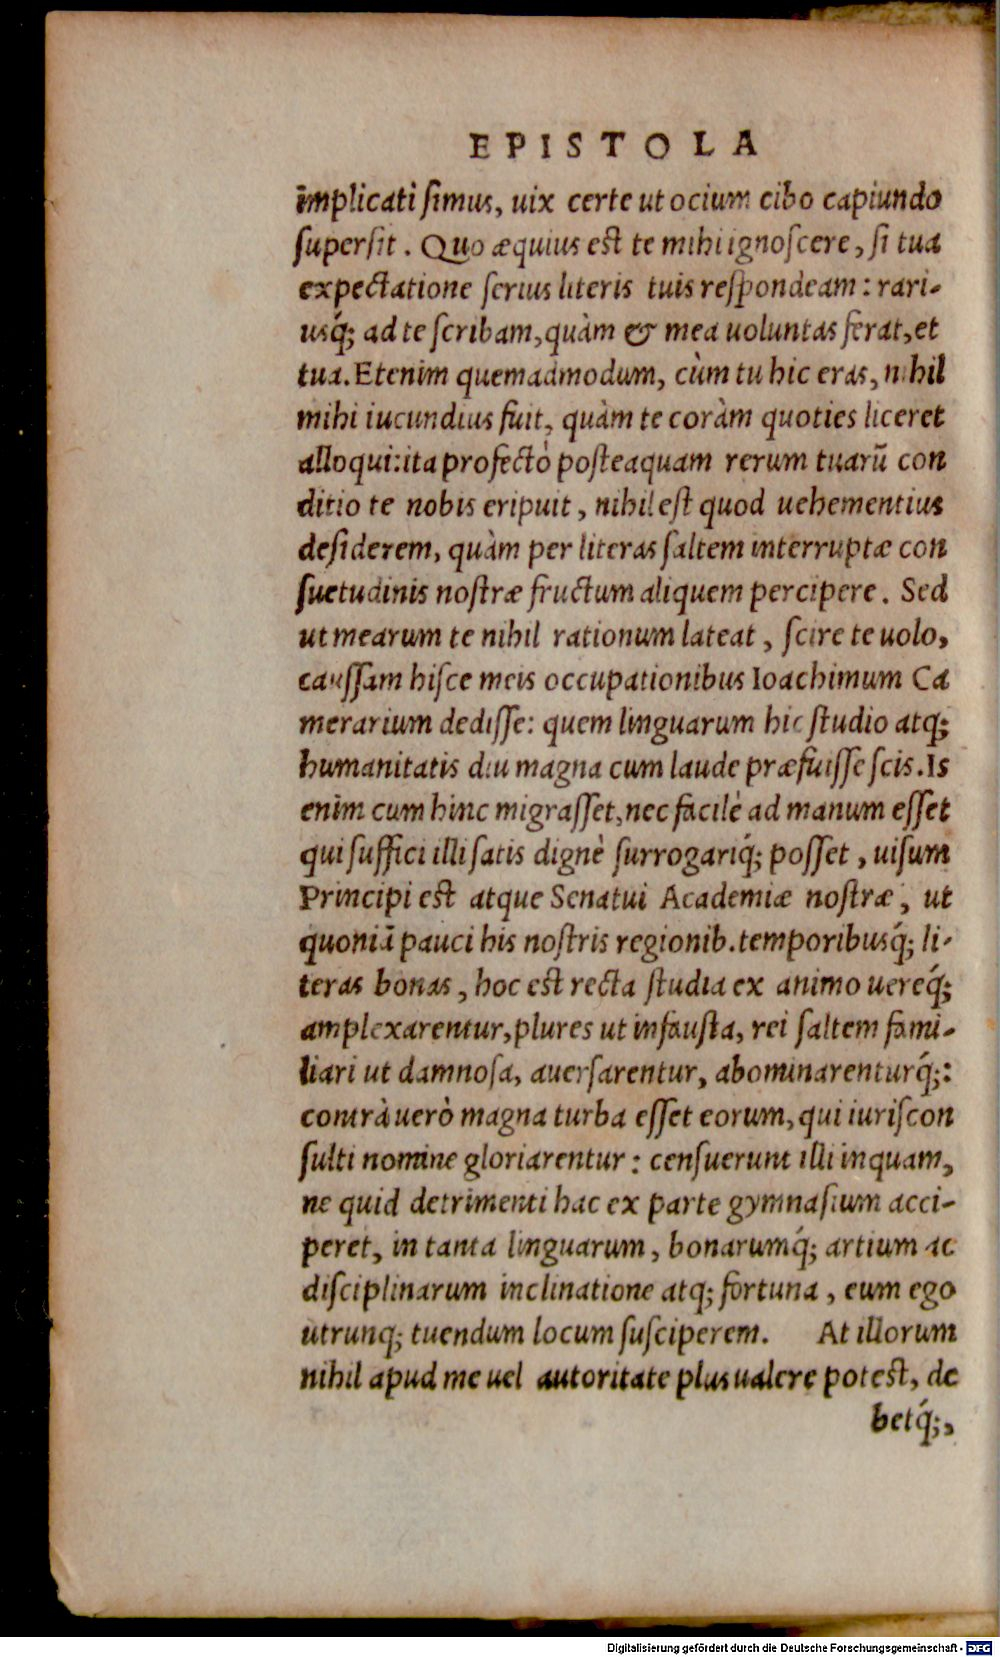 EPISTOLA
implicati simus, uix certe ut ocium cibo capiundo
supersit. Quo æquius est te mihi ignoscere, si tua
expectatione serius literis tuis respondeam: rari-
usq́; ad te scribam, quàm & mea uoluntas ferat, et
tua. Etenim quemadmodum, cùm tu hic eras, nihil
mihi iucundius fuit, quàm te coràm quoties liceret
alloqui: ita profectò posteaquam rerum tuarũ con
ditio te nobis eripuit, nihil est quod uehementius
desiderem, quàm per literas saltem interruptæ con
suetudinis nostræ fructum aliquem percipere. Sed
ut mearum te nihil rationum lateat, scire te uolo,
caussam hisce meis occupationibus Ioachimum Ca
merarium dedisse: quem linguarum hic studio atq;
humanitatis diu magna cum laude præfuisse scis. Is
enim cum hinc migrasset, nec facilè ad manum esset
qui suffici illi satis dignè surrogariq́; posset, uisum
Principi est atque Senatui Academiæ nostræ, ut
quoniã pauci his nostris regionib. temporibusq́; li-
teras bonas, hoc est recta studia ex animo uereq́;
amplexarentur, plures ut infausta, rei saltem fami-
liari ut damnosa, auersarentur, abominarenturq́;:
contrà uerò magna turba esset eorum, qui iuriscon
sulti nomine gloriarentur: censuerunt illi inquam,
ne quid detrimenti hac ex parte gymnasium acci-
peret, in tanta linguarum, bonarumq́; artium ac
disciplinarum inclinatione atq; fortuna, eum ego
utrunq; tuendum locum susciperem. At illorum
nihil apud me uel autoritate plus ualere potest, de
betq́;,
Digitalisierung gefördert durch die Deutsche Forschungsgemeinschaft - DFG